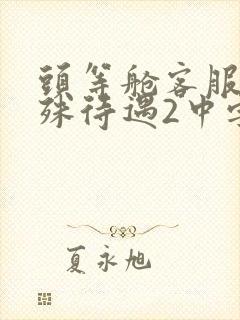 頭等舱客服
殊待遇2中字
夏永旭